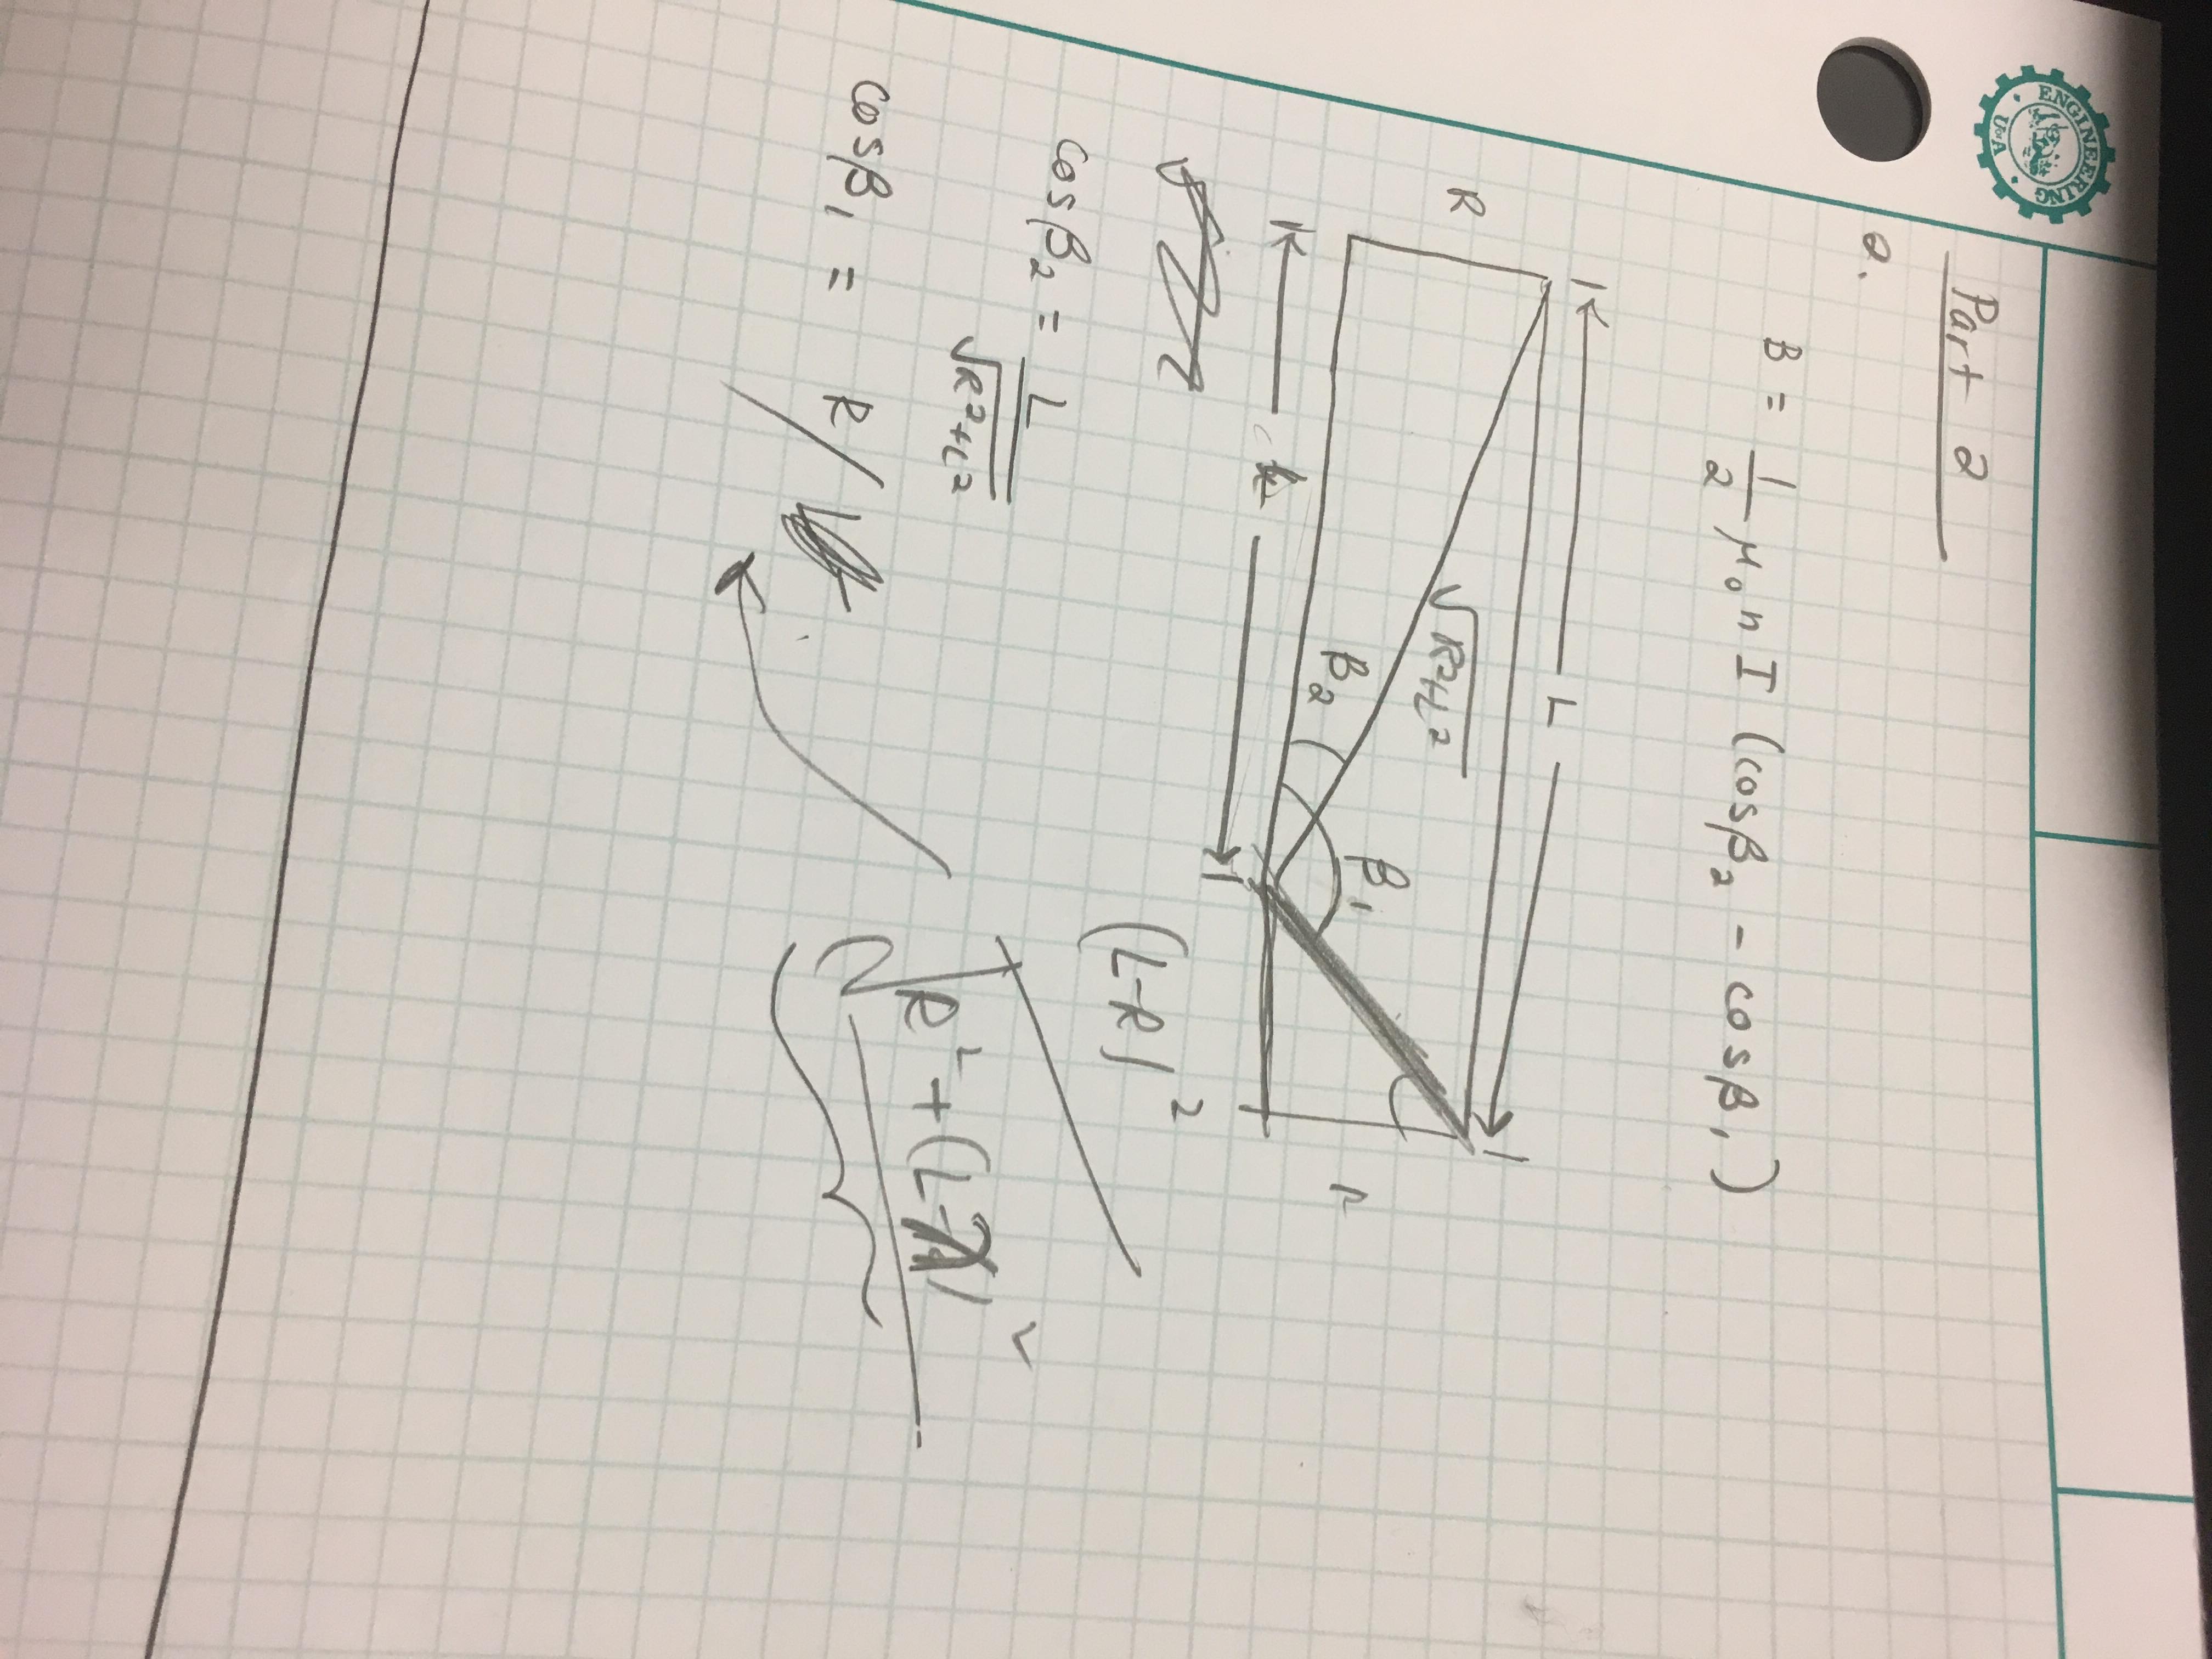 ENGINEERING
U of A
Part 2
2.
B = 1/2 μ₀ n I (cosβ₂ - cosβ₁)
L
R
√R²+L²
β₂
β₁
R
(L-R)²
cosβ₂ = L/√R²+L²
√R²+(L-
)²
cosβ₁ = R/